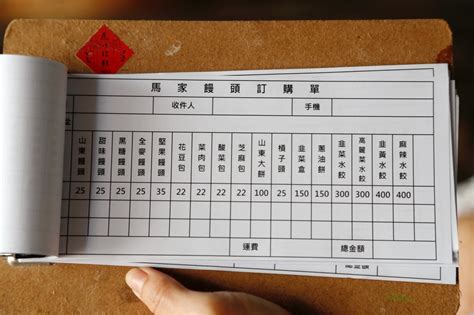 馬家饅頭訂購單
收件人 手機
山東饅頭 甜味饅頭 黑糖饅頭 全麥饅頭 堅果饅頭 花豆包 菜肉包 酸菜包 芝麻包 山東大餅 槓子頭 韭菜盒 蔥油餅 韭菜水餃 高麗菜水餃 韭黃水餃 麻辣水餃
25 25 25 25 35 22 22 22 22 100 25 30 150 300 300 400 400
運費 總金額